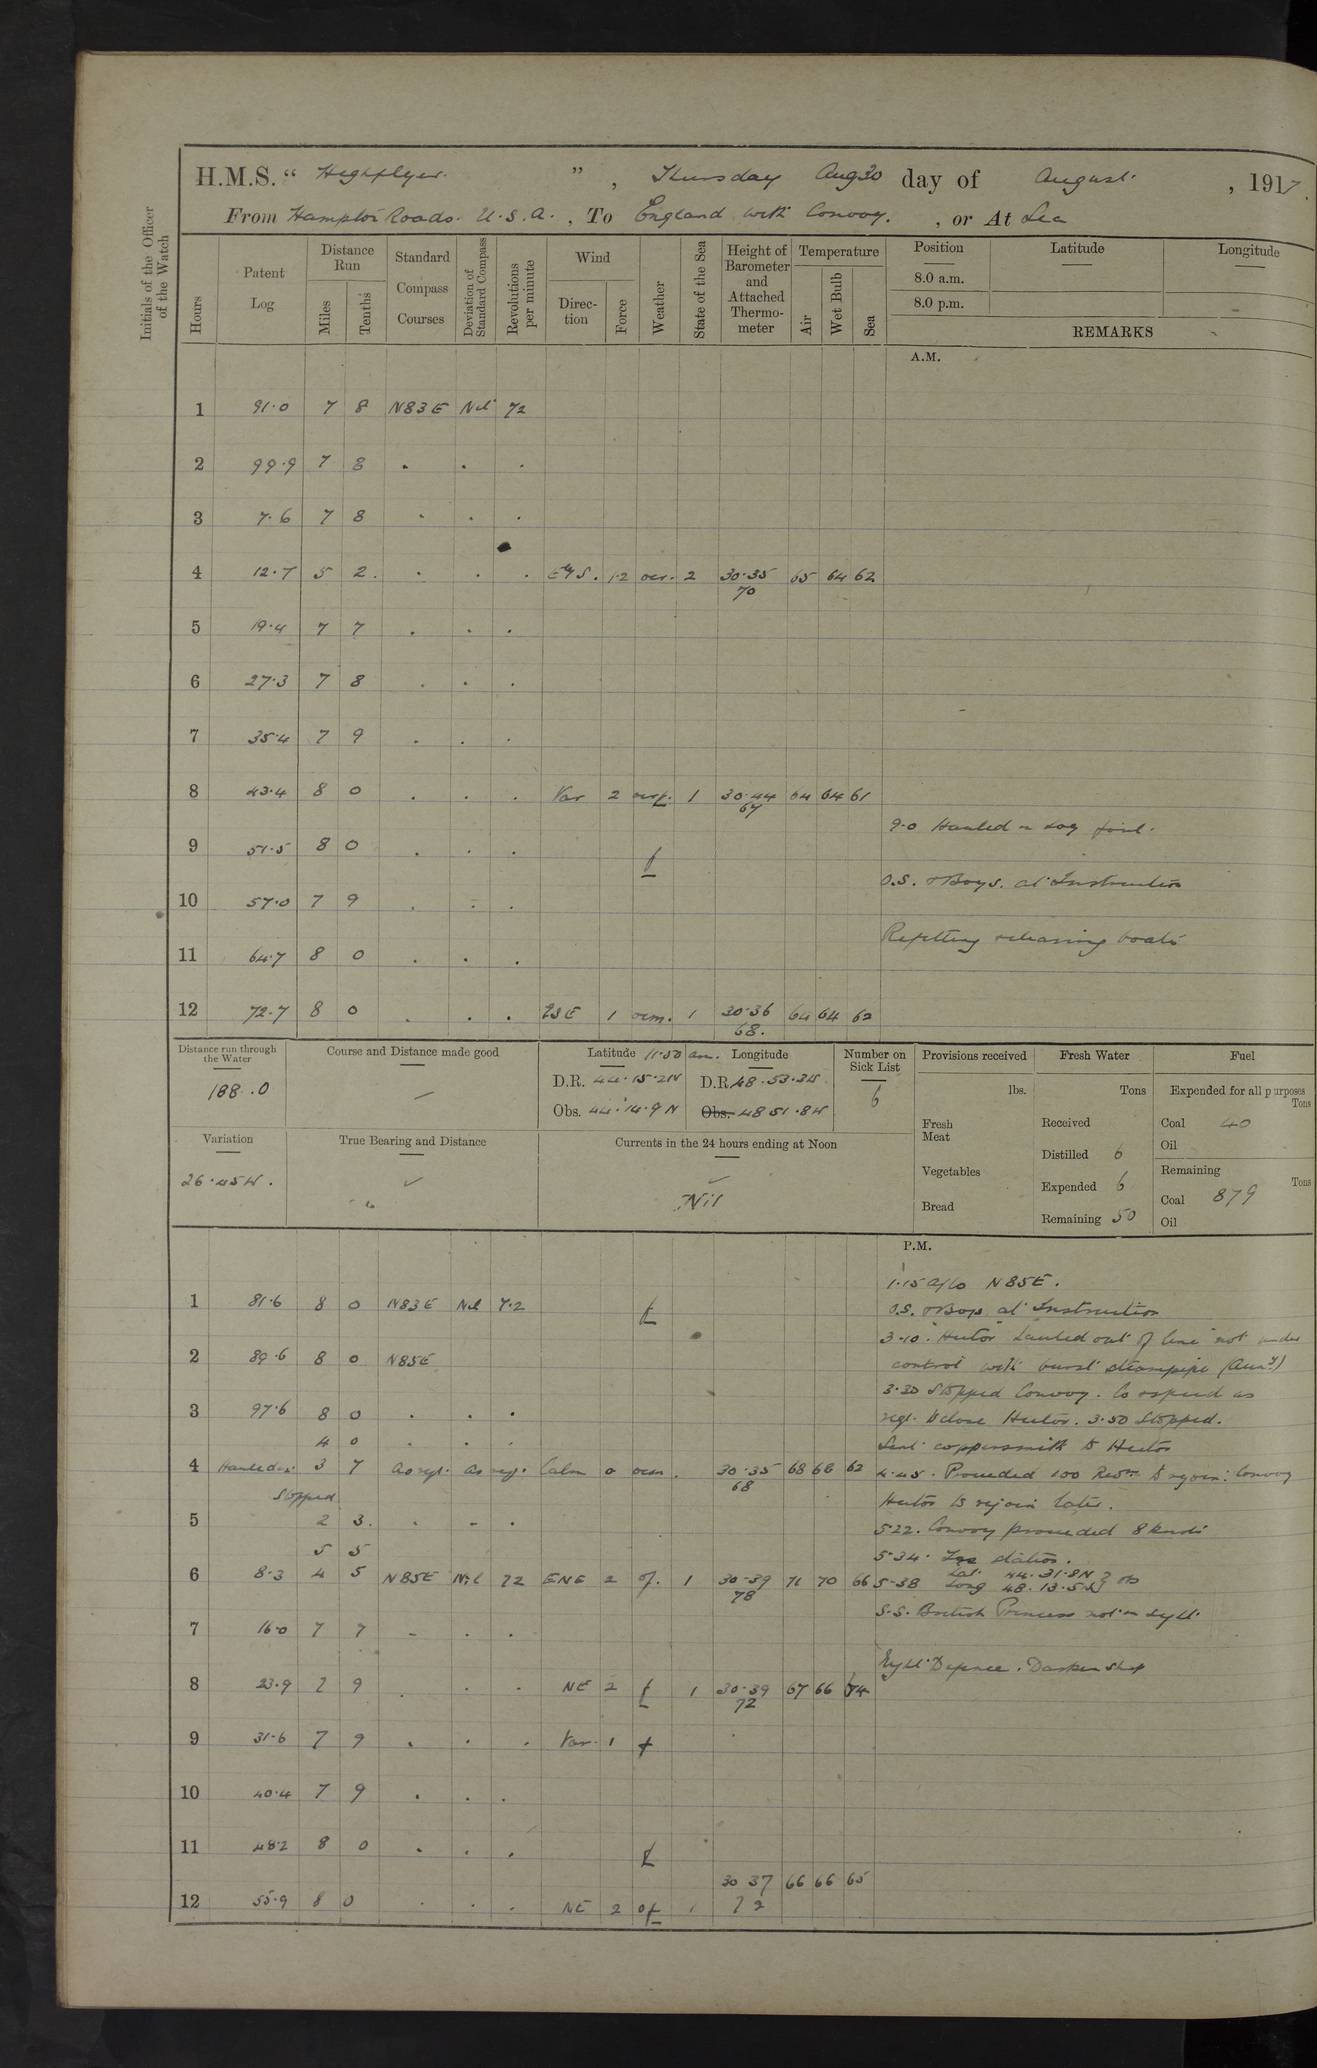 H.M.S. “ Highflyer ” , Thursday Aug 30 day of August , 1917.
From Hampton Roads. U.S.A. , To England with Convoy. , or At Sea
Initials of the Officer of the Watch
Hours
Patent Log
Distance Run
Miles
Tenths
Standard Compass Courses
Deviation of Standard Compass
Revolutions per minute
Wind
Direction
Force
Weather
State of the Sea
Height of Barometer and Attached Thermometer
Temperature
Air
Wet Bulb
Sea
Position Latitude Longitude
8.0 a.m.
8.0 p.m.
REMARKS
A.M.
1 91.0 7 8 N83E Nil 72
2 99.9 7 8 . . .
3 7.6 7 8 . . .
4 12.7 5 2 . . . EbyS. 1.2 ocr. 2 30.35 65 64 62
70
5 19.4 7 7 . . .
6 27.3 7 8 . . .
7 35.4 7 9 . . .
8 43.4 8 0 . . . Var 2 1 30.44 64 64 61
67
9.0 Hauled in Log
9 51.5 8 0 . . . f
O.S. & Boys. at Instruction
10 57.0 7 9 . . .
Refitting boats
11 64.7 8 0 . . .
12 72.7 8 0 . . . ESE 1 ocm. 1 30.36 64 64 62
68.
Distance run through the Water
188.0
Course and Distance made good
Latitude 11.50 am. Longitude
D.R. 44.15.2N D.R. 48.53.3W
Obs. 44.14.9N Obs. 48 51.8W
Number on Sick List
6
Provisions received
lbs.
Fresh Meat
Vegetables
Bread
Fresh Water
Tons
Received
Distilled 6
Expended 6
Remaining 50
Fuel
Expended for all purposes
Tons
Coal 40
Oil
Remaining
Tons
Coal 879
Oil
Variation
26.45W.
True Bearing and Distance
Currents in the 24 hours ending at Noon
Nil
P.M.
1.15 a/co N85E.
1 81.6 8 0 N83E Nil 7.2 f
O.S. & Boys at Instruction
3.10. "Hector" hauled out of line "not under
2 89.6 8 0 N85E
control with burst steampipe (Auxy)
3.30 Stopped Convoy. Co & speed as
3 97.6 8 0 . . .
req. to close Hector. 3.50 Stopped.
4 0 . . .
Sent coppersmith to Hector
4 Hauled in 3 7 As req. As req. Calm 0 ocm. 30.35 68 68 62
68
4.45. Proceeded 100 Revs. to rejoin Convoy
Stopped
Hector to rejoin later.
5 2 3. . - .
5.22. Convoy proceeded 8 knots
5 5
5.34. station.
6 8.3 4 5 N85E Nil 72 ENE 2 of. 1 30.39 71 70 66
78
5.38 Lat. 44.31.8N
Long 48.13.5W } obs
S.S. British Princess not in sight.
7 16.0 7 7 - . .
Night Defence. Darken Ship
8 23.9 7 9 . . . NE 2 f 1 30.39 67 66 74
72
9 31.6 7 9 . . . Var. 1 f
10 40.4 7 9 . . .
11 48.2 8 0 . . . f
30 37 66 66 65
12 55.9 8 0 . . . NE 2 of
72